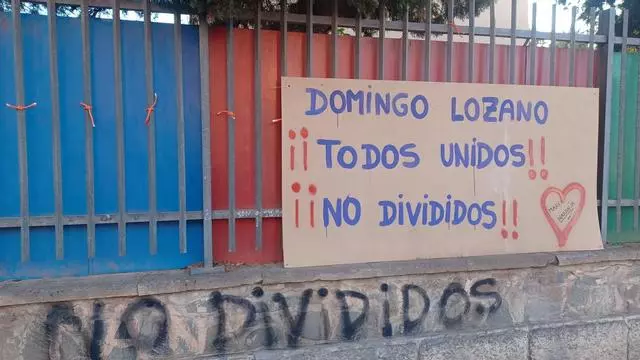 DOMINGO LOZANO
¡¡TODOS UNIDOS!!
¡¡NO DIVIDIDOS!!
NO DIVIDIDOS